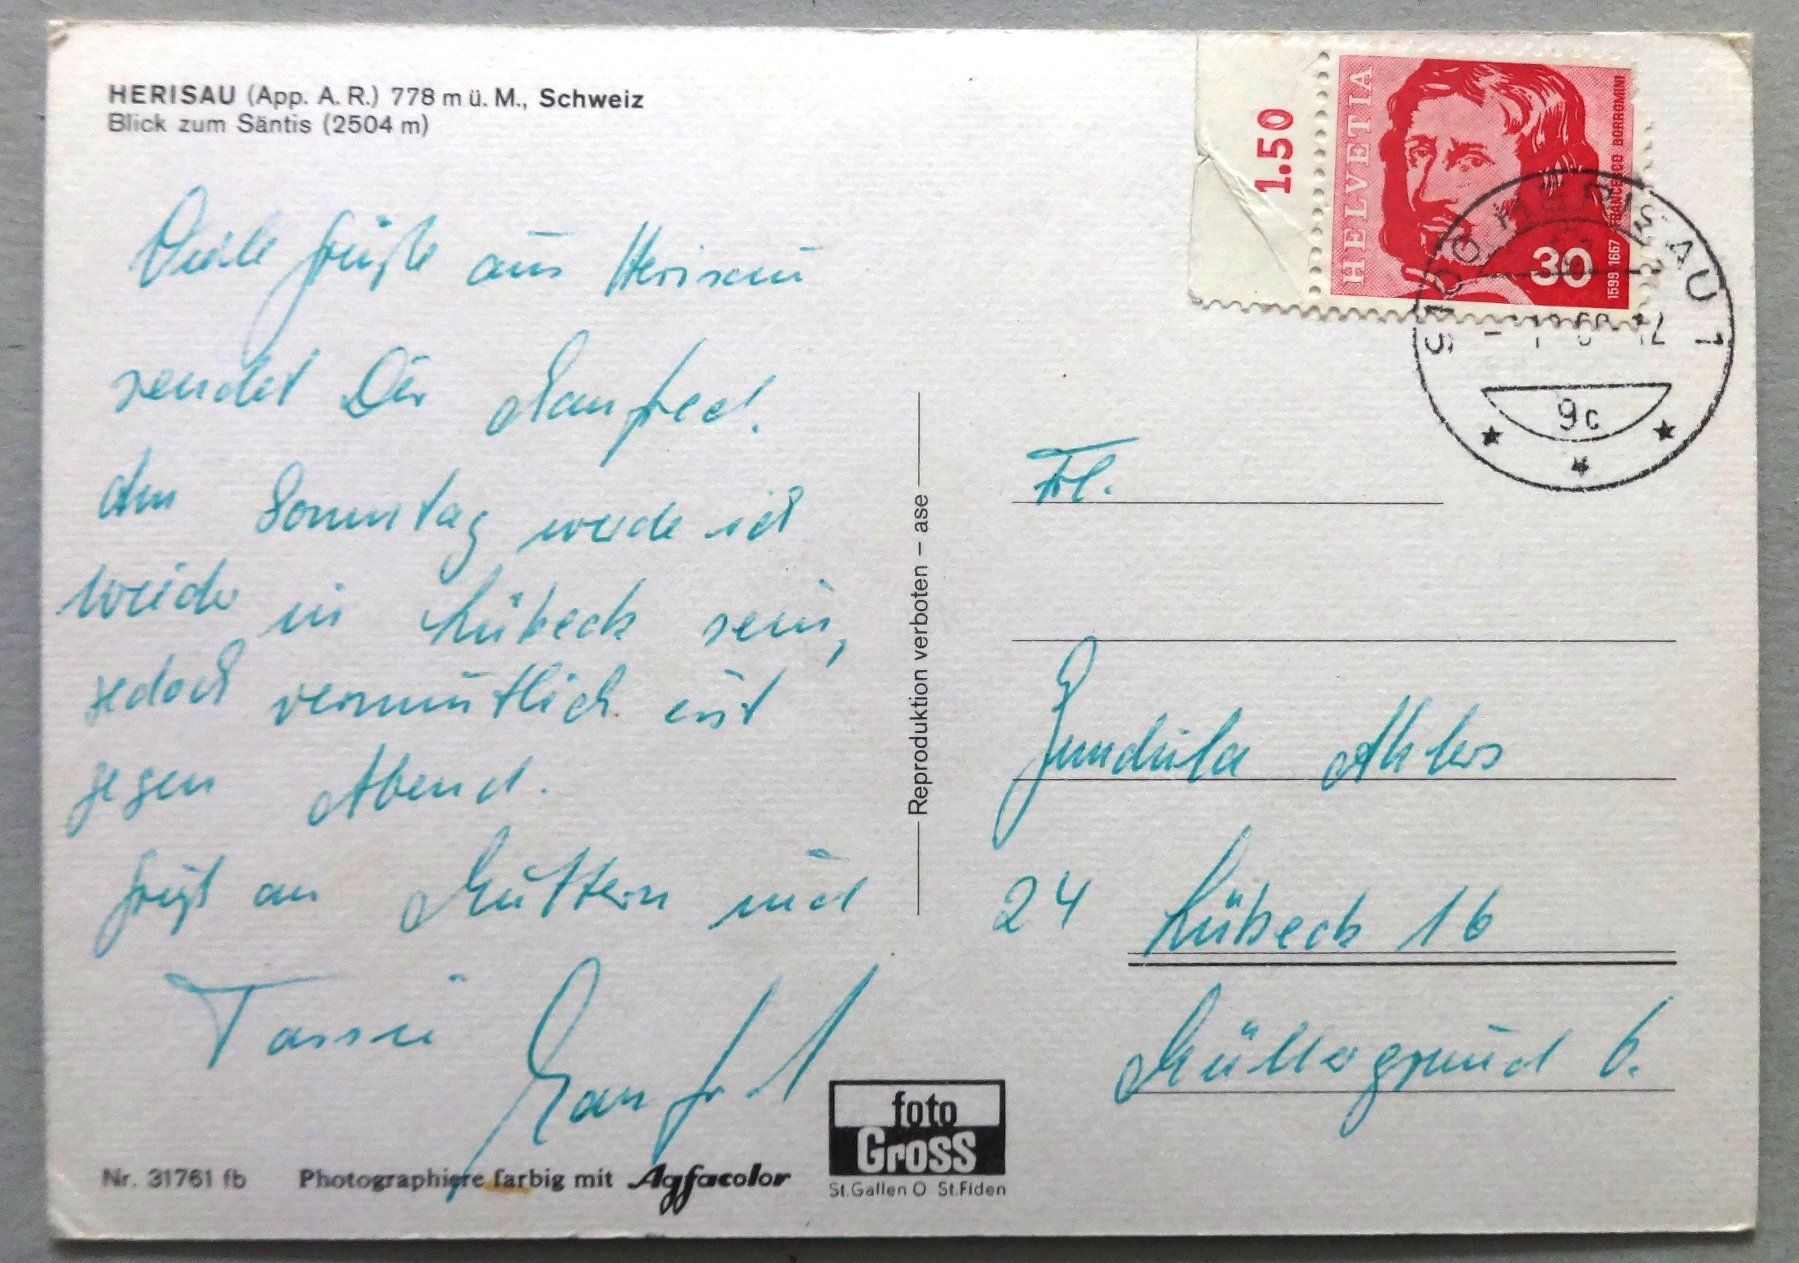 HERISAU (App. A. R.) 778 m ü. M., Schweiz
Blick zum Säntis (2504 m)
Viele Grüße aus Herisau
sendet Dir Manfred.
Am Sonntag werde ich
wieder in Lübeck sein,
jedoch vermutlich erst
gegen Abend.
Grüßt an Muttern und
Tassii
Manfred
Nr. 31761 fb Photographiere farbig mit Agfacolor
foto
Gross
St.Gallen O St.Fiden
Reproduktion verboten – ase
1.50
HELVETIA
FRANCESCO BORROMINI
1599 1667
30
9100 HERISAU 1
9c
Frl.
Gundula Ahlers
24 Lübeck 16
Müllergrund 6.